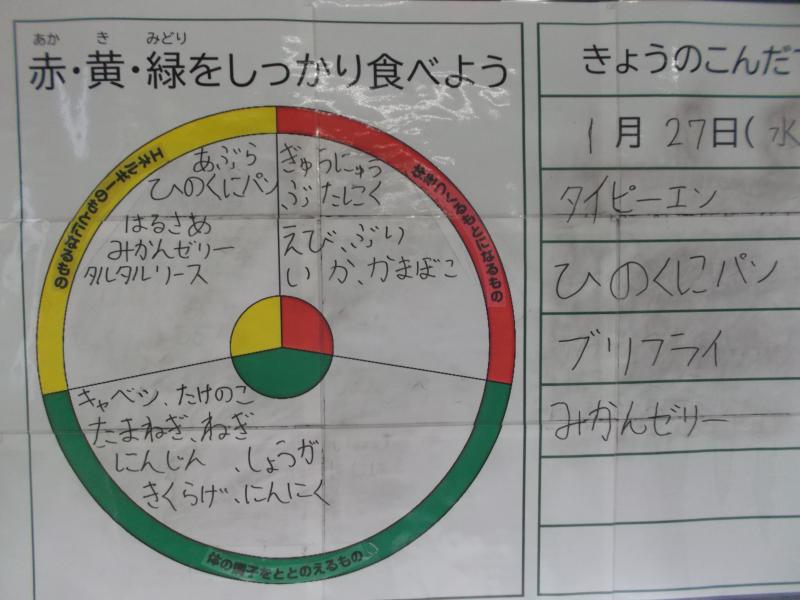 あか き みどり
赤・黄・緑をしっかり食べよう
エネルギーのもとになるもの
体をつくるもとになるもの
あぶら
ひのくにパン
はるさめ
みかんゼリー
タルタルソース
ぎゅうにゅう
ぶたにく
えび、ぶり
いか、かまぼこ
キャベツ、たけのこ
たまねぎ、ねぎ
にんじん、しょうが
きくらげ、にんにく
体の調子をととのえるもの
きょうのこんだて
1月27日(水
タイピーエン
ひのくにパン
ブリフライ
みかんゼリー